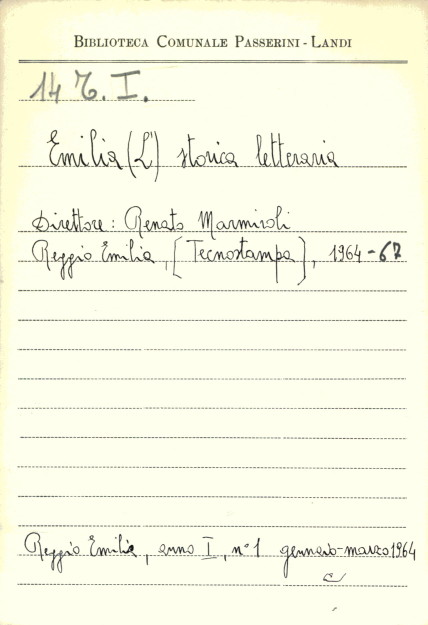 BIBLIOTECA COMUNALE PASSERINI - LANDI
14 T. I.
Emilia (L') storica letteraria
Direttore: Renato Marmiroli
Reggio Emilia, [Tecnostampa], 1964 - 67
Reggio Emilia, anno I, n° 1 gennaio-marzo 1964